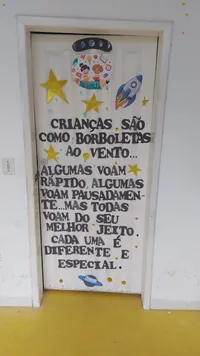 CRIANÇAS SÃO
COMO BORBOLETAS
AO VENTO...
ALGUMAS VOAM
RÁPIDO, ALGUMAS
VOAM PAUSADAMEN-
TE...MAS TODAS
VOAM DO SEU
MELHOR JEITO.
CADA UMA É
DIFERENTE E
ESPECIAL.